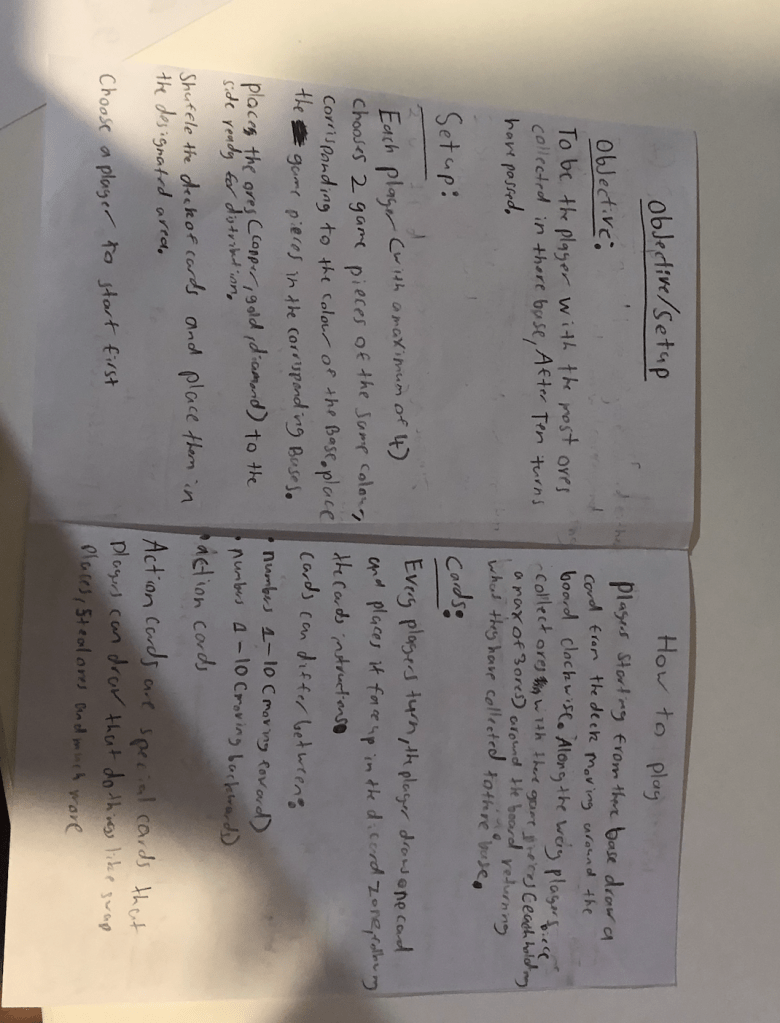 Objective/Setup
Objective:
To be the player with the most ores
collected in there base, After Ten turns
have passed.
Setup:
Each player (with a maximum of 4)
chooses 2 game pieces of the same colour,
corrisponding to the colour of the Base. place
the game pieces in the corrisponding Bases.
places the ores (copper, gold, diamond) to the
side ready for distribution.
Shufele the deck of cards and place them in
the designated area.
Choose a player to start first
How to play
players starting from there base draw a
card from the deck moving around the
board clockwise. Along the way players
collect ores with there game pieces (each piece holding
a max of 3 ores) around the board returning
what they have collected to there base.
Cards:
Every players turn, the player draws one card
and places it face up in the discard zone,
the cards instructions.
cards can differ between:
• numbers 1-10 (moving forward)
• numbers 1-10 (moving backwards)
• action cards
Action cards are special cards that
players can draw that do things like swap
places, steal ores and much more